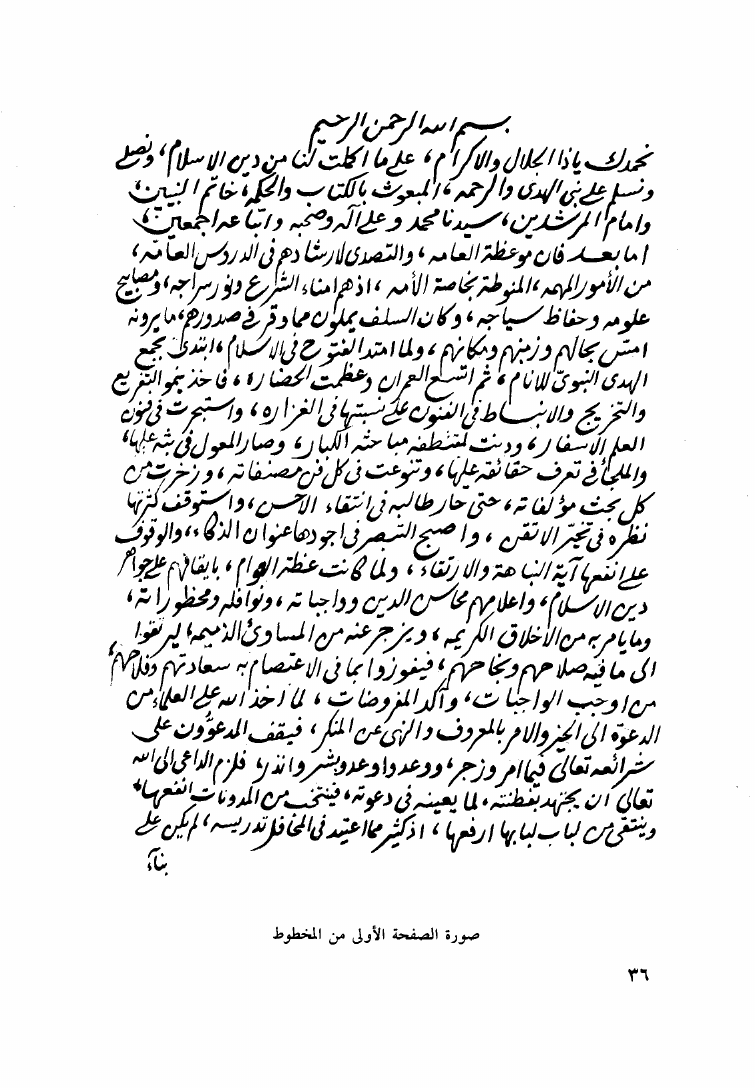 بسم الله الرحمن الرحيم
نحمدك ياذا الجلال والاكرام، على ما اكملت لنا من دين الاسلام، ونصلي
ونسلم على نبي الهدى والرحمه، المبعوث بالكتاب والحكمه، خاتم النبيين،
وامام المرشدين، سيدنا محمد وعلى آله وصحبه واتباعه اجمعين،
اما بعد فان موعظة العامه، والتصدى لارشادهم في الدروس العامه،
من الأمور المهمه، المنوطة بخاصة الأمه، اذ هم امناء الشرع ونور سراجه، ومصابيح
علومه وحفاظ سياجه، وكان السلف يملون مما وقر في صدورهم، ما يرونه
امس بحالهم وزمنهم ومكانهم، ولما امتد الفتوح في الاسلام، ابتدئ بجمع
الهدى النبوي للانام، ثم اتسع العمران وعظمت الحضاره، فاخذ ينمو التفريع
والتخريج والانبساط في الفنون على نسبتها في الغزاره، واستبحرت في فنون
العلم الاسفار، ودنت لمقتطفه مباحثه الكبار، وصار المعول في بثه عليها،
والملجأ في تعرف حقائقه عليها، وتنوعت في كل فن مصنفاته، وزخرت من
كل بحث مؤلفاته، حتى حار طالبه في انتقاء الاحسن، واستوقف كثرتها
نظره في تخير الاتقن، واصبح التبصر في اجودها عنوان الذكاء، والوقوف
على انفعها آية النباهة والارتقاء، ولما كانت عظة العوام، بايقافهم على جواهر
دين الاسلام، واعلامهم محاسن الدين وواجباته، ونوافله ومحظوراته،
وما يامر به من الأخلاق الكريمه، ويزجر عنه من المساوئ الذميمه، ليرتقوا
الى ما فيه صلاحهم ونجاحهم، فيفوزوا بما في الاعتصام به سعادتهم وفلاحهم،
من اوجب الواجبات، وآكد المفروضات، لما اخذ الله على العلماء من
الدعوة الى الخير والامر بالمعروف والنهي عن المنكر، فيقف المدعوون على
شرائعه تعالى فيما امر وزجر، ووعد واوعد وبشر وانذر، فلزم الداعي الى الله
تعالى ان يجتهد بفطنته، لما يعينه في دعوته، فينتخب من المدونات انفعها،
وينتقي من لباب لبابها ارفعها، اذ كثير مما اعتيد في المحافل تدريسه، لم يكن على
بناء
صورة الصفحة الأولى من المخطوط
٣٦